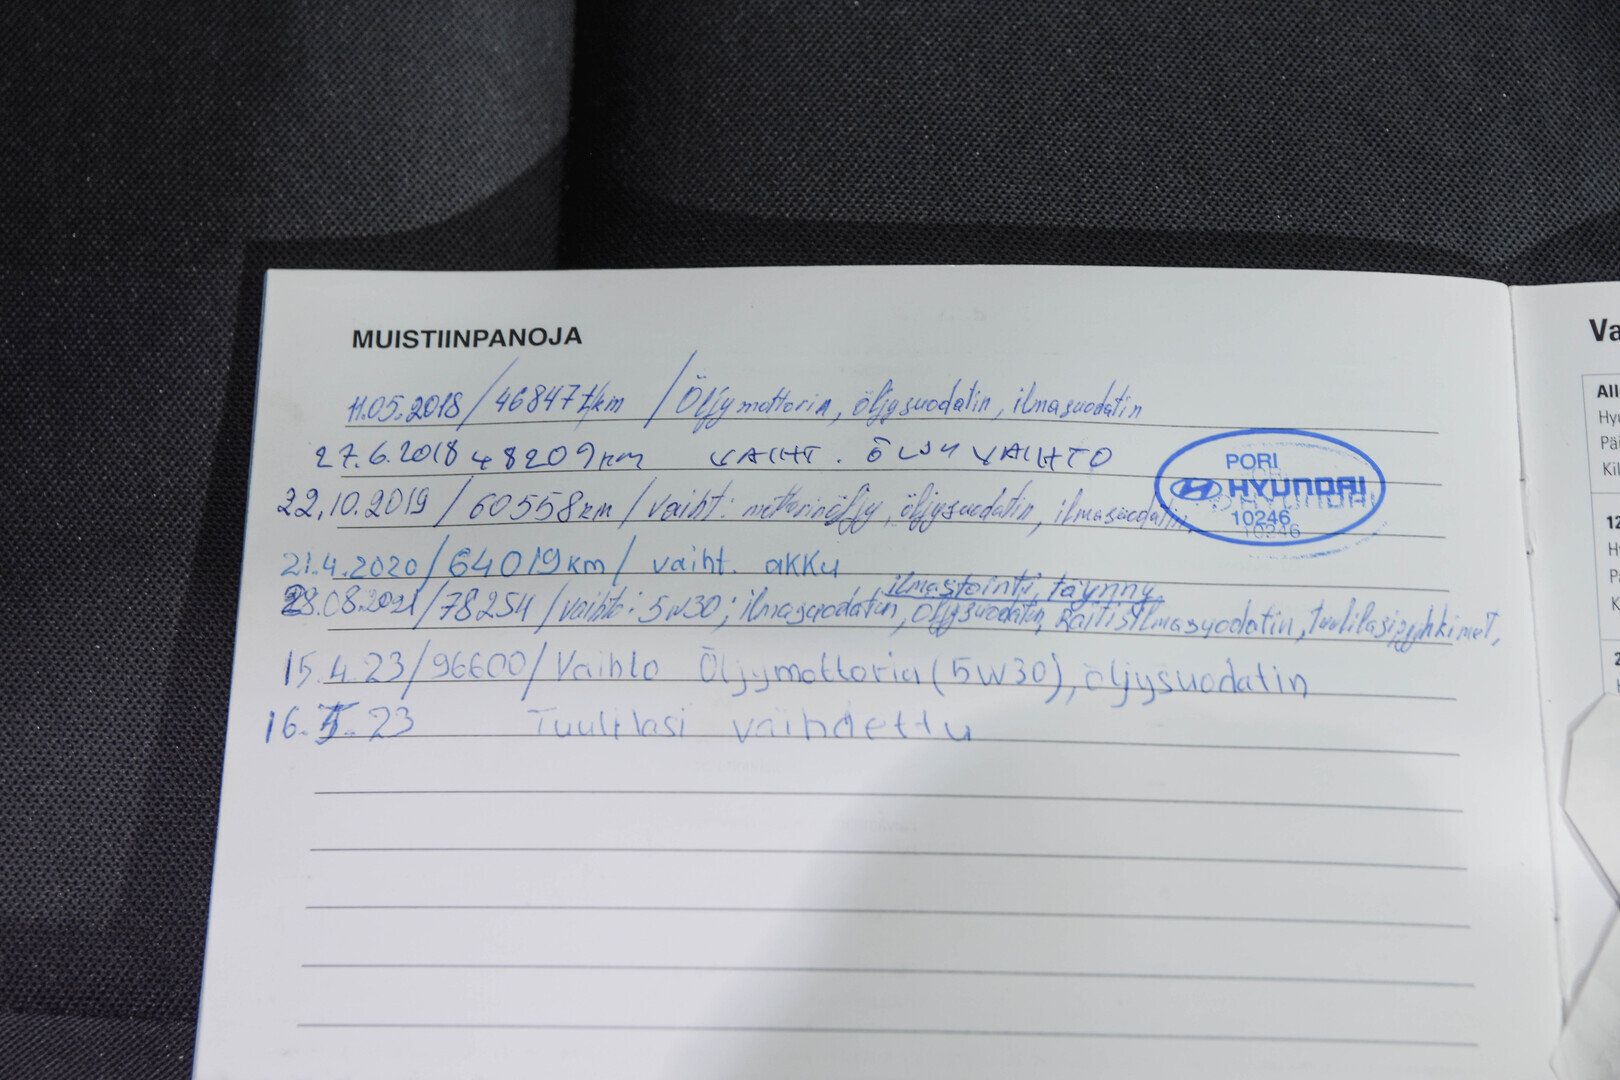 MUISTIINPANOJA
11.05.2018 / 46847 t/km / Öljy mottorin, öljysuodatin, ilmasuodatin
27.6.2018 48209 km VAIHT. ÖLJY VAIHTO
PORI
HYUNDAI
10246
22.10.2019 / 60558 km / vaiht: mottorinöljy, öljysuodatin, ilmasuodatin,
21.4.2020 / 64019 km / vaiht. akku
ilmastointi, täynny
28.08.2021 / 78254 / vaihto: 5w30; ilmasuodatin, öljysuodatin, raitisilmasuodatin, tuulilasipyhkimet,
15.4.23 / 96600 / Vaihto Öljymottoria (5W30), öljysuodatin
16. .23 Tuulilasi vaihdettu
Va
All
Hyu
Päi
Kil
12
H
Pä
K
2